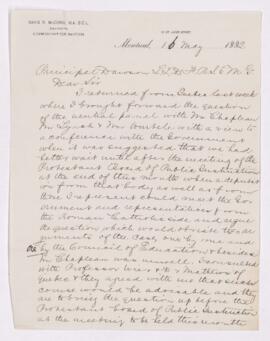 DAVID R. McCORD, M.A. B.C.L.
ADVOCATE
COMMISSIONER FOR QUEBEC
Montreal, 16 May 1882
Principal Dawson LL.D. F.R.S. C.M.G.
Dear Sir
I returned from Quebec last week
where I brought forward the question
of the central panel with Mr Chapleau
Mr Lynch & Mr Ouimet with a view to
a conference with the Government
when it was suggested that we had
better wait until after the meeting of the
Protestant Board of Public Instruction
at the end of this month when a deputation
from that body as well as from
those I represent could meet the Government
and representatives from
the Roman Catholic side and argue the
question which would obviate two arguments
of the case one by me and
one by the Council of Education besides
Mr Chapleau was unwell. I consulted
with Professor Weir & Mr Mathews of
Quebec & they agree with me that such a
course would be advisable and they
are to bring the question up before the
Protestant board of Public Instruction
at the meeting to be held this month